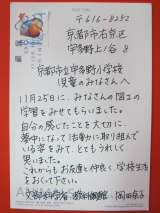 〒616-8252
京都市右京区
宇多野上ノ谷 8
京都市立宇多野小学校
児童のみなさんへ
11月25日に、みなさんの図工の
学習をみせてもらいました。
自分の感じたことを大切に
夢中になってお仕事に取り組んで
いる姿をみて、とてもうれしく
思いました。
これからもお友達と仲良く、学校生活
をおくって下さい。
文部科学省 教科調査官 岡田京子